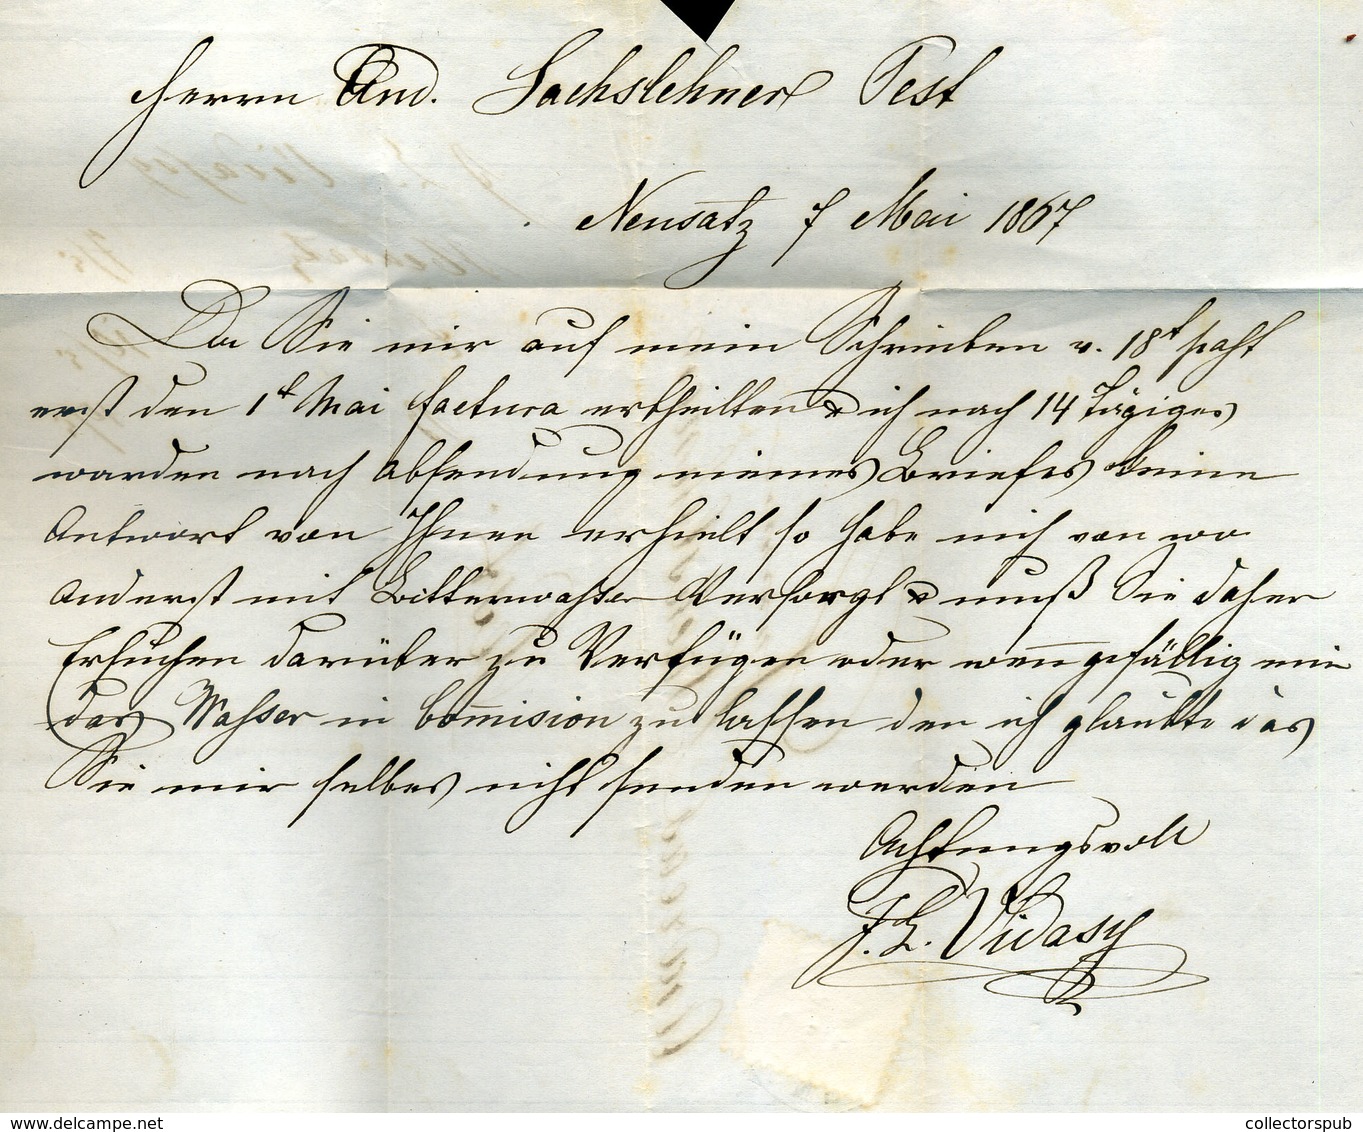 Herrn And. Sachslehner Pest
Neusatz 7 Mai 1867
Da Sie mir auf mein Schreiben v. 18t
erst den 1t Mai factura ertheilten & ich nach 14 Tägiges
warden nach Absendung meines Briefes keine
Antwort von Ihnen erhielt so habe mich von wo
anderst mit Bitterwasser Versorgt & muß Sie daher
Ersuchen darüber zu Verfügen oder wen gefällig mir
das Wasser in Comission zu lassen den ich glaubte das
Sie mir selbes nicht senden werden
Achtungsvoll
F. L. Vidasy
www.delcampe.net
collectorspub